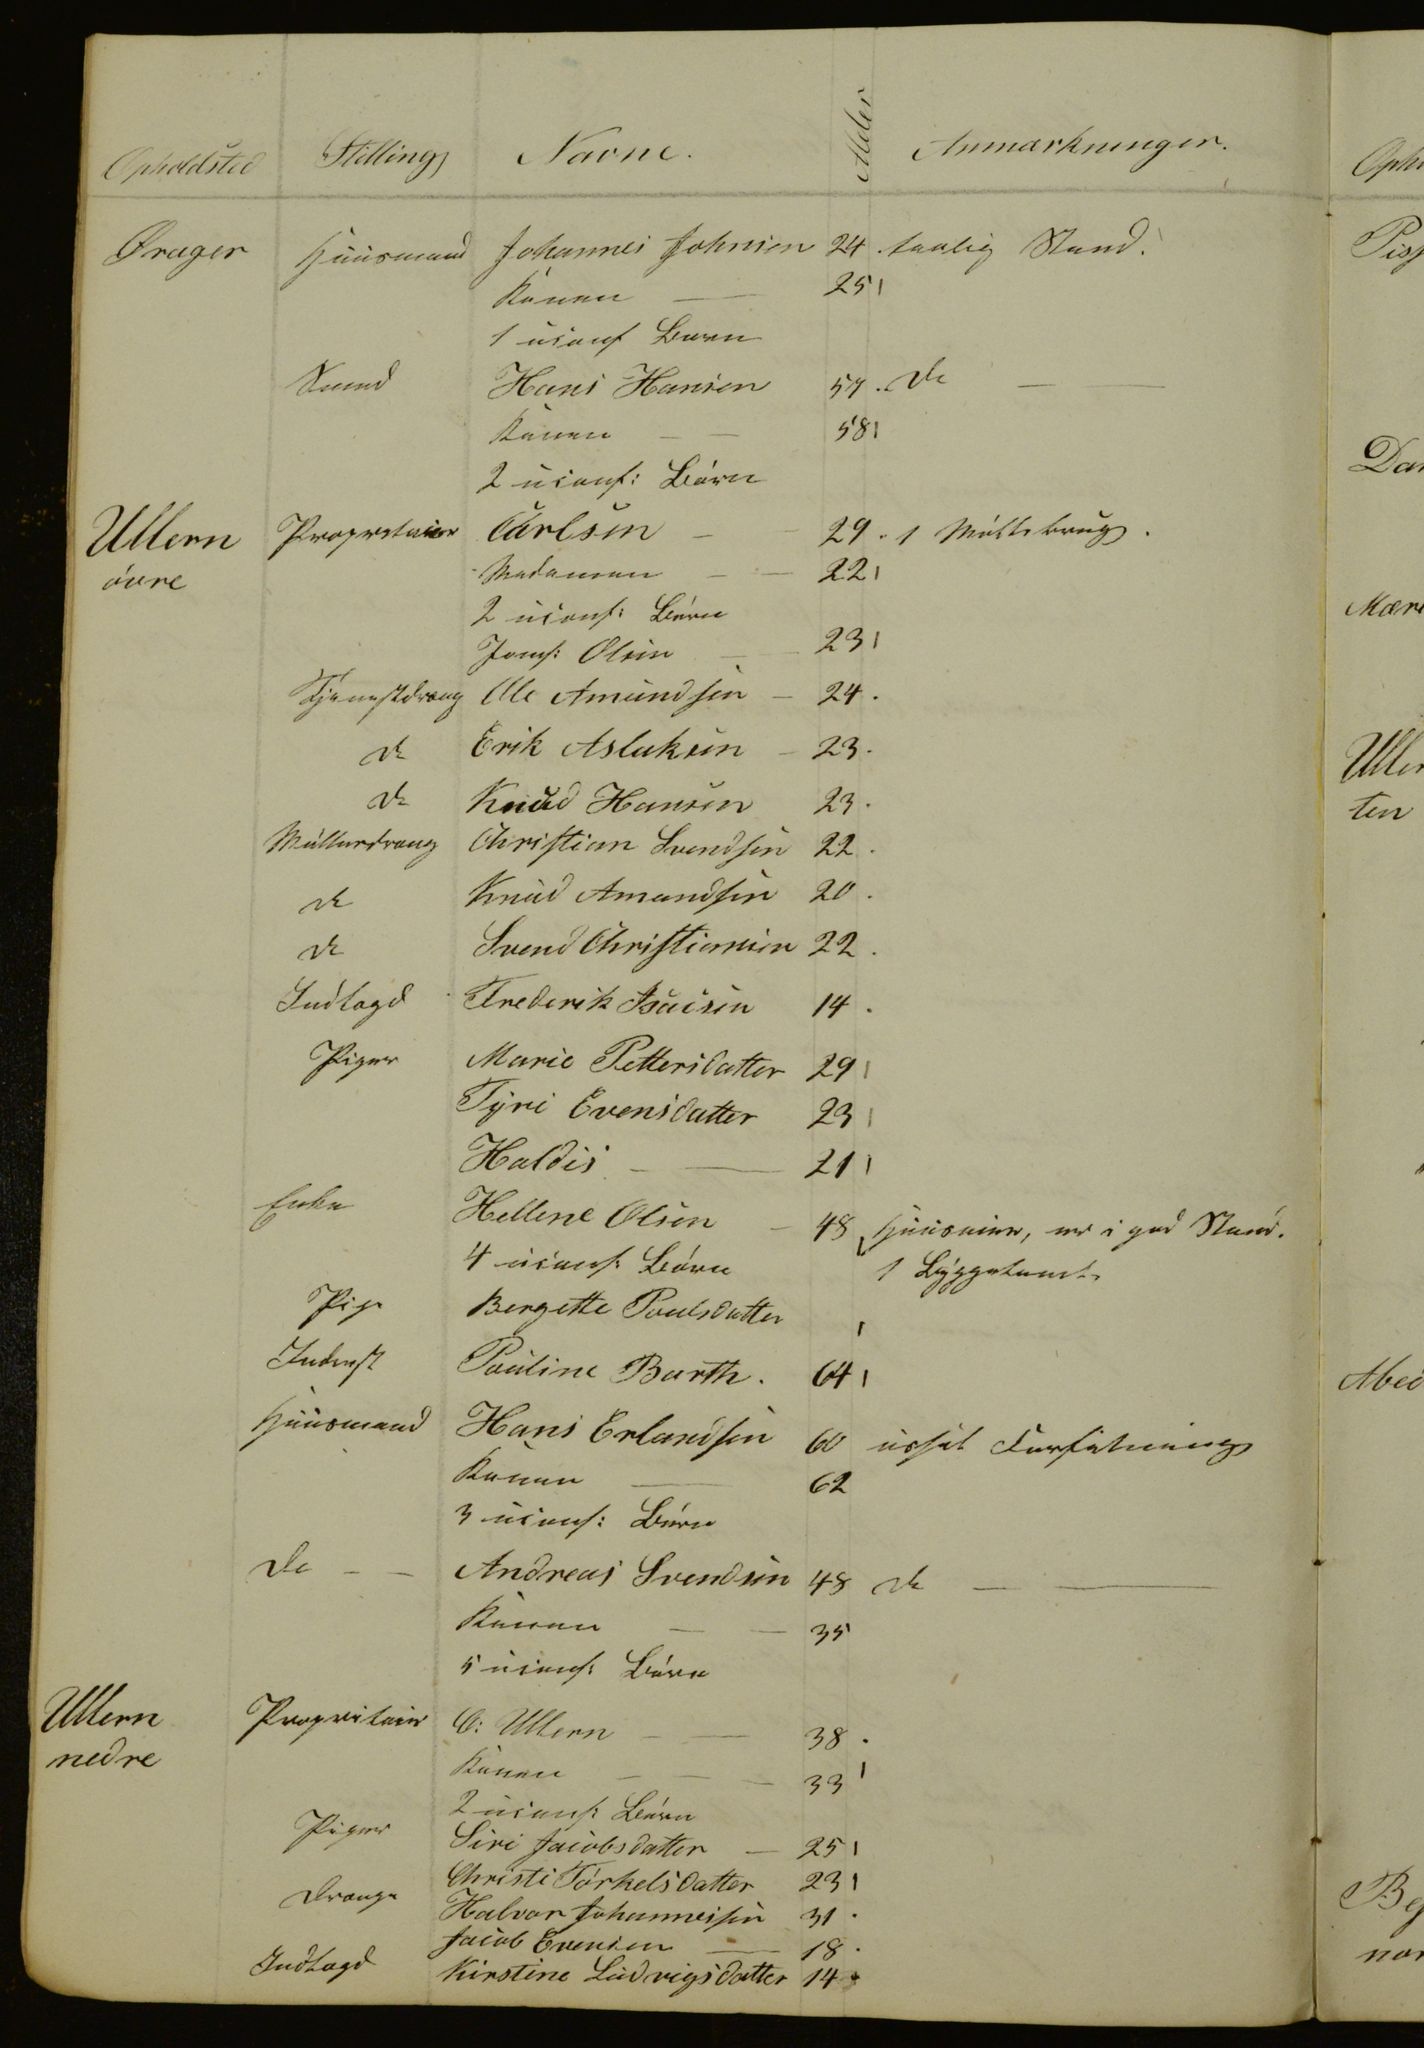 Opholdsted Stilling Navne. Alder Anmærkninger.
Ørager Huusmand Johannes Johnsen 24. taalig Stand.
Konen — 25
1 uconf Barn
Smed Hans Hansen 57. do —
Konen — 58
2 uconf: Börn
Ullern Propretaire Carlsen — 29. 1 Möllebrug.
övre Madamen — 22
2 uconf: Börn
Jomf: Olsen — 23
Tjenestdreng Ole Amundsen — 24.
do Erik Aslaksen — 23.
do Knud Hansen 23.
Möllerdreng Christian Svendsen 22.
do Knud Amundsen 20.
do Svend Christiansen 22.
Indlagd Frederik Isacsen 14.
Piger Marie Pettersdatter 29
Tyri Evensdatter 23
Haldis — 21
Enke Hellene Olsen — 48 Huuseier, er i god Stand.
4 uconf: Börn 1 Byggetomt
Pige Bergette Poulsdatter
Inderst Pauline Barth. 64
Huusmand Hans Erlandsen 60 ussel Forfatning
Konen — 62
3 uconf: Börn
do — Andreas Svendsen 48 do —
Konen — 35
5 uconf: Börn
Ullern Propritair O: Ullern — 38.
nedre Konen — 33
2 uconf: Börn
Piger Siri Jacobsdatter — 25
Christi Törkelsdatter 23
Drenge Halvor Johannessen 31.
Jacob Evensen — 18.
Indlagd Kirstine Ludvigsdatter 14